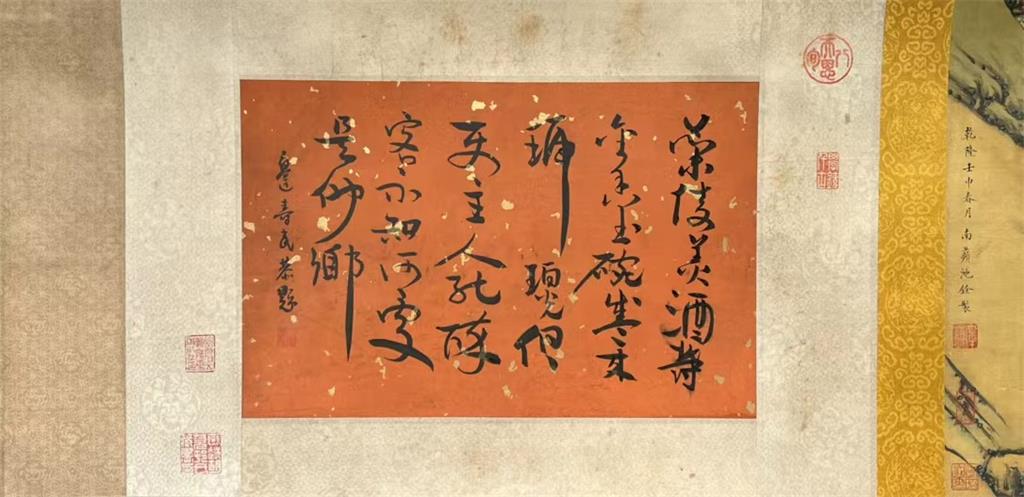 乾隆壬申春月南蘋沈銓製
蘭陵美酒鬱
金香玉碗盛来
琥珀光但
使主人能醉
客不知何處
是他鄉
邊壽民恭題